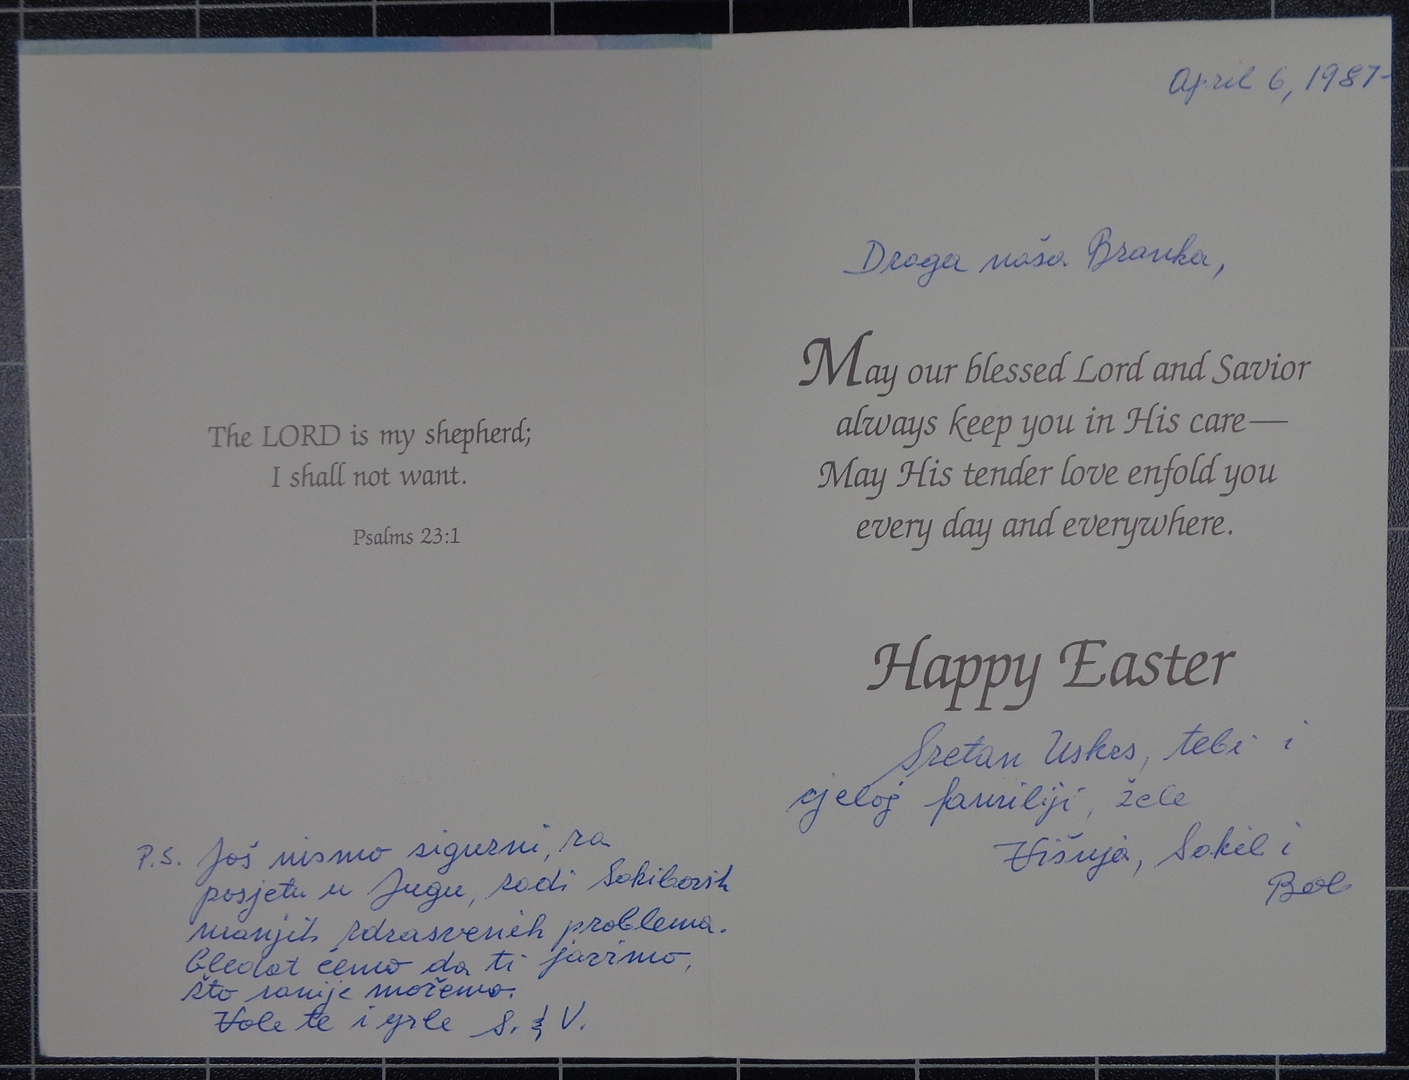 The LORD is my shepherd;
I shall not want.
Psalms 23:1
P.S. Još nismo sigurni, za
posjetu u Jugu, radi Sokibovih
manjih zdrastvenih problema.
Gledat ćemo da ti javimo,
što ranije možemo.
Vole te i grle S. & V.
April 6, 1987-
Draga naša Branka,
May our blessed Lord and Savior
always keep you in His care—
May His tender love enfold you
every day and everywhere.
Happy Easter
Sretan Uskrs, tebi i
cjeloj familiji, žele
Višnja, Sokib i
Bob